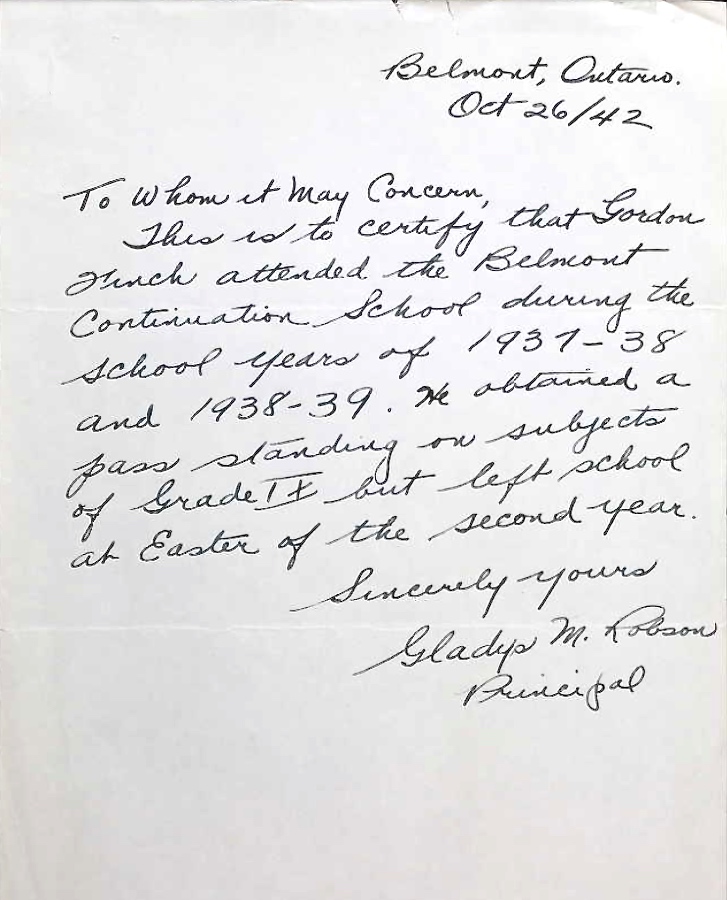 Belmont, Ontario.
Oct 26/42
To Whom it May Concern,
This is to certify that Gordon
Finch attended the Belmont
Continuation School during the
school years of 1937-38
and 1938-39. He obtained a
pass standing on subjects
of Grade IX but left school
at Easter of the second year.
Sincerely yours
Gladys M. Robson
Principal